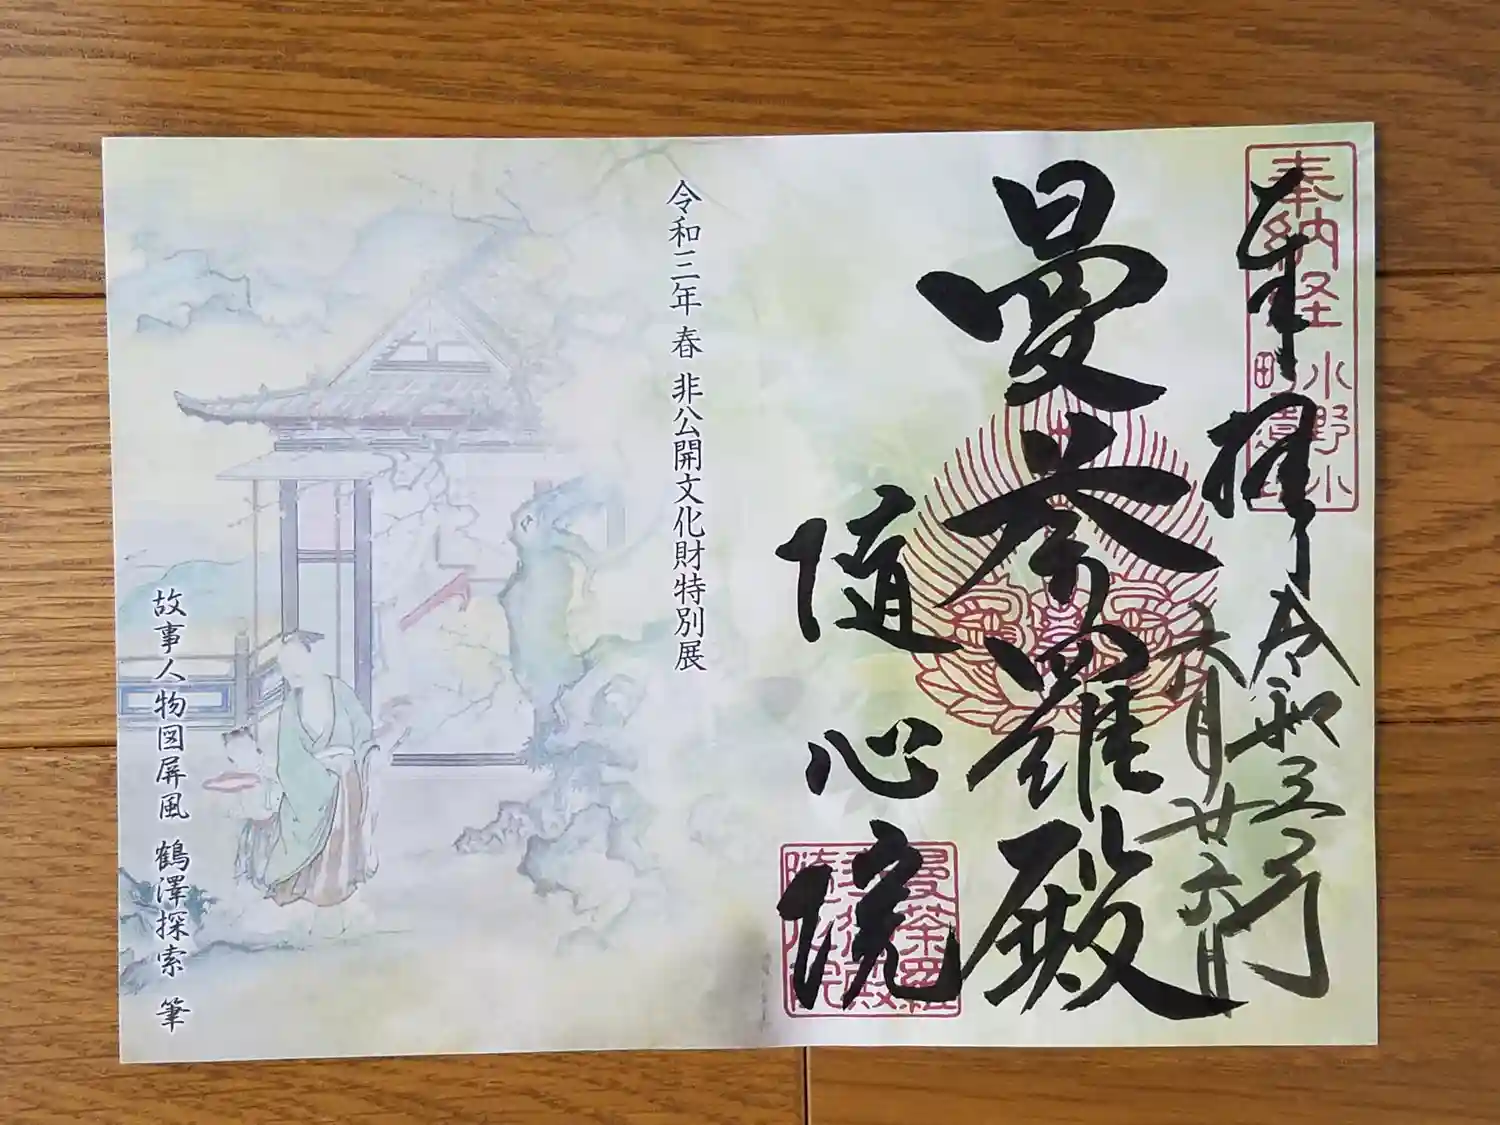 奉拝
令和三年
六月廿六日
曼荼羅殿
随心院
奉納経
小野小
令和三年 春 非公開文化財特別展
故事人物図屏風 鶴澤探索 筆